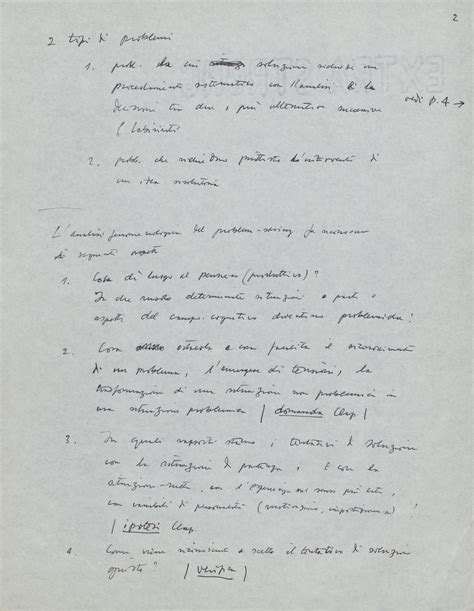 2
2 tipi di problemi
1. probl. la cui soluzione richiede un
procedimento sistematico con l'analisi e la
decisione tra due o più alternative successive
(labirinti)
vedi p. 4 →
2. probl. che richiedono piuttosto l'intervento di
un'idea risolutiva
L'analisi fenomenologica del problem-solving fa
di seguenti aspetti
1. Cosa dà luogo al pensiero (produttivo)?
In che modo determinate situazioni o parti o
aspetti del campo cognitivo diventano problematici?
2. Cosa ostacola e cosa facilita il riconoscimento
di un problema, l'emergere di tensioni, la
trasformazione di una situazione non problematica in
una situazione problematica | domanda Clap. |
3. In quali rapporti stanno i tentativi di soluzione
con la situazione di partenza, e con la
situazione-meta, con l'esperienza nel senso più lato,
con variabili di personalità (motivazione, impostazione)
| ipotesi Clap.
4. Come viene riconosciuto e scelto il tentativo di soluzione
giusto? | verifica |